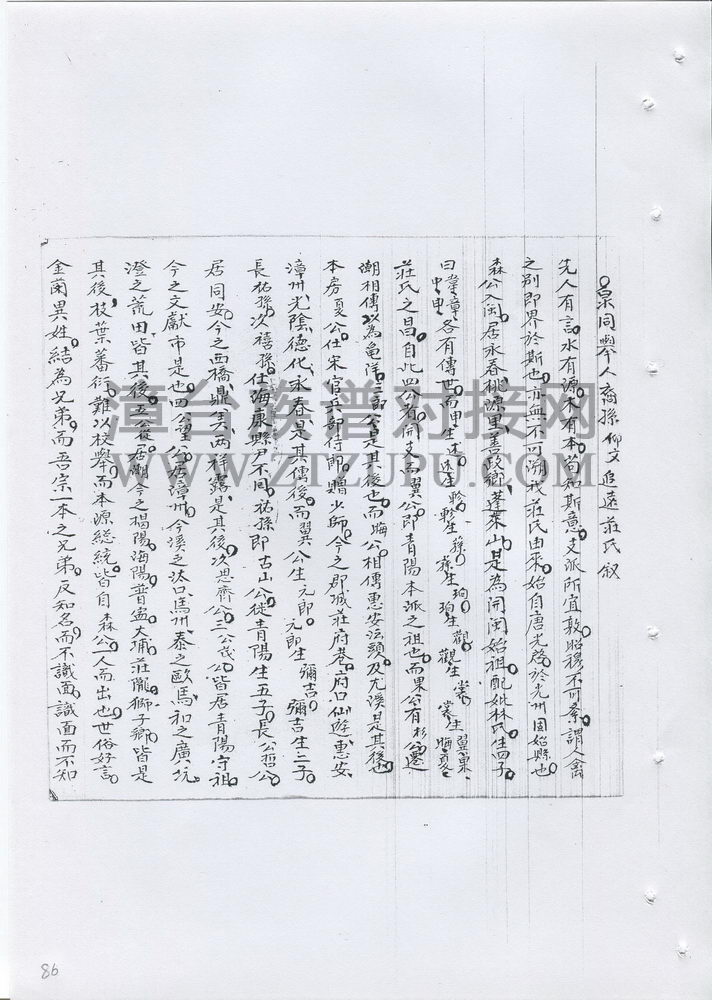 泉同舉人裔孫仰文追遠莊氏叙
先人有言水有源木有本苟知斯意支派所宜敦昭穆不可紊謂人禽
之别即界於斯也亦無不可溯我莊氏由來始自唐光啓於光州固始縣也
森公入閩居永春桃源里善政鄉蓬萊山是為開閩始祖配妣林氏生四子
曰章申各有傳世而申生述述生軫軫生蓀蓀生珣珣生觀觀生裳裳生翼果晦夏
莊氏之昌自此四公者開支而翼公即青陽本派之祖也而果公有杉公遷
潮相傳以為龜洋三郎公皆是其後也而晦公相傳惠安法頭及尤溪是其後也
本房夏公仕宋官兵部侍即贈少師今之郡城莊府巷府口仙遊惠安
漳州光陰德化永春是其傳後而翼公生元郎元郎生彌吉彌吉生二子
長祐孫次禧孫仕海康縣尹不同祐孫即古山公徙青陽生五子長公哲公
居同安今之西橋鼎美两祥露是其後次思齊公三公茂公皆居青陽守祖
今之文獻市是也四公望公居漳州今溪之汰口馬州泰之歐馬和之廣坑
澄之荒田皆其後五公從居潮今之揭陽海陽普盂大埔莊隴獅子鄉皆是
其後枝葉蕃衍難以枚舉而本源總統皆自森公一人而出也世俗好言
金蘭異姓結為兄弟而吾宗一本之兄弟反知名而不識面識面而不知
漳台族谱对接网
WWW.ZTZUPU.COM
86